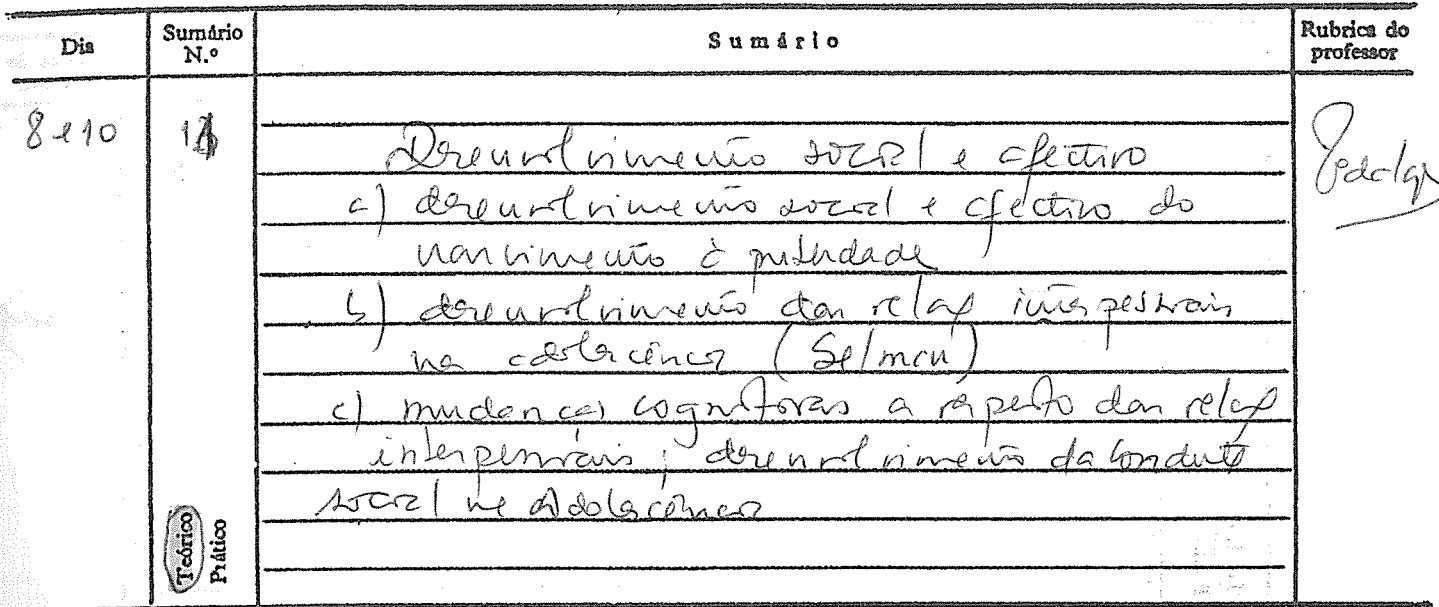 Dia
Sumário N.º
Sumário
Rubrica do professor
8 e 10
Desenvolvimento social e afectivo
a) desenvolvimento social e afectivo do
nascimento à puberdade
b) desenvolvimento das relaç interpessoais
na adolescência (Selman)
c) mudanças cognitivas a respeito das relaç
interpessoais; desenvolvimento da conduta
social na adolescência
Teórico
Prático